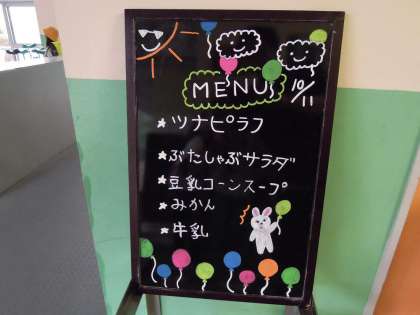 MENU
10/11
★ツナピラフ
★ぶたしゃぶサラダ
★豆乳コーンスープ
★みかん
★牛乳